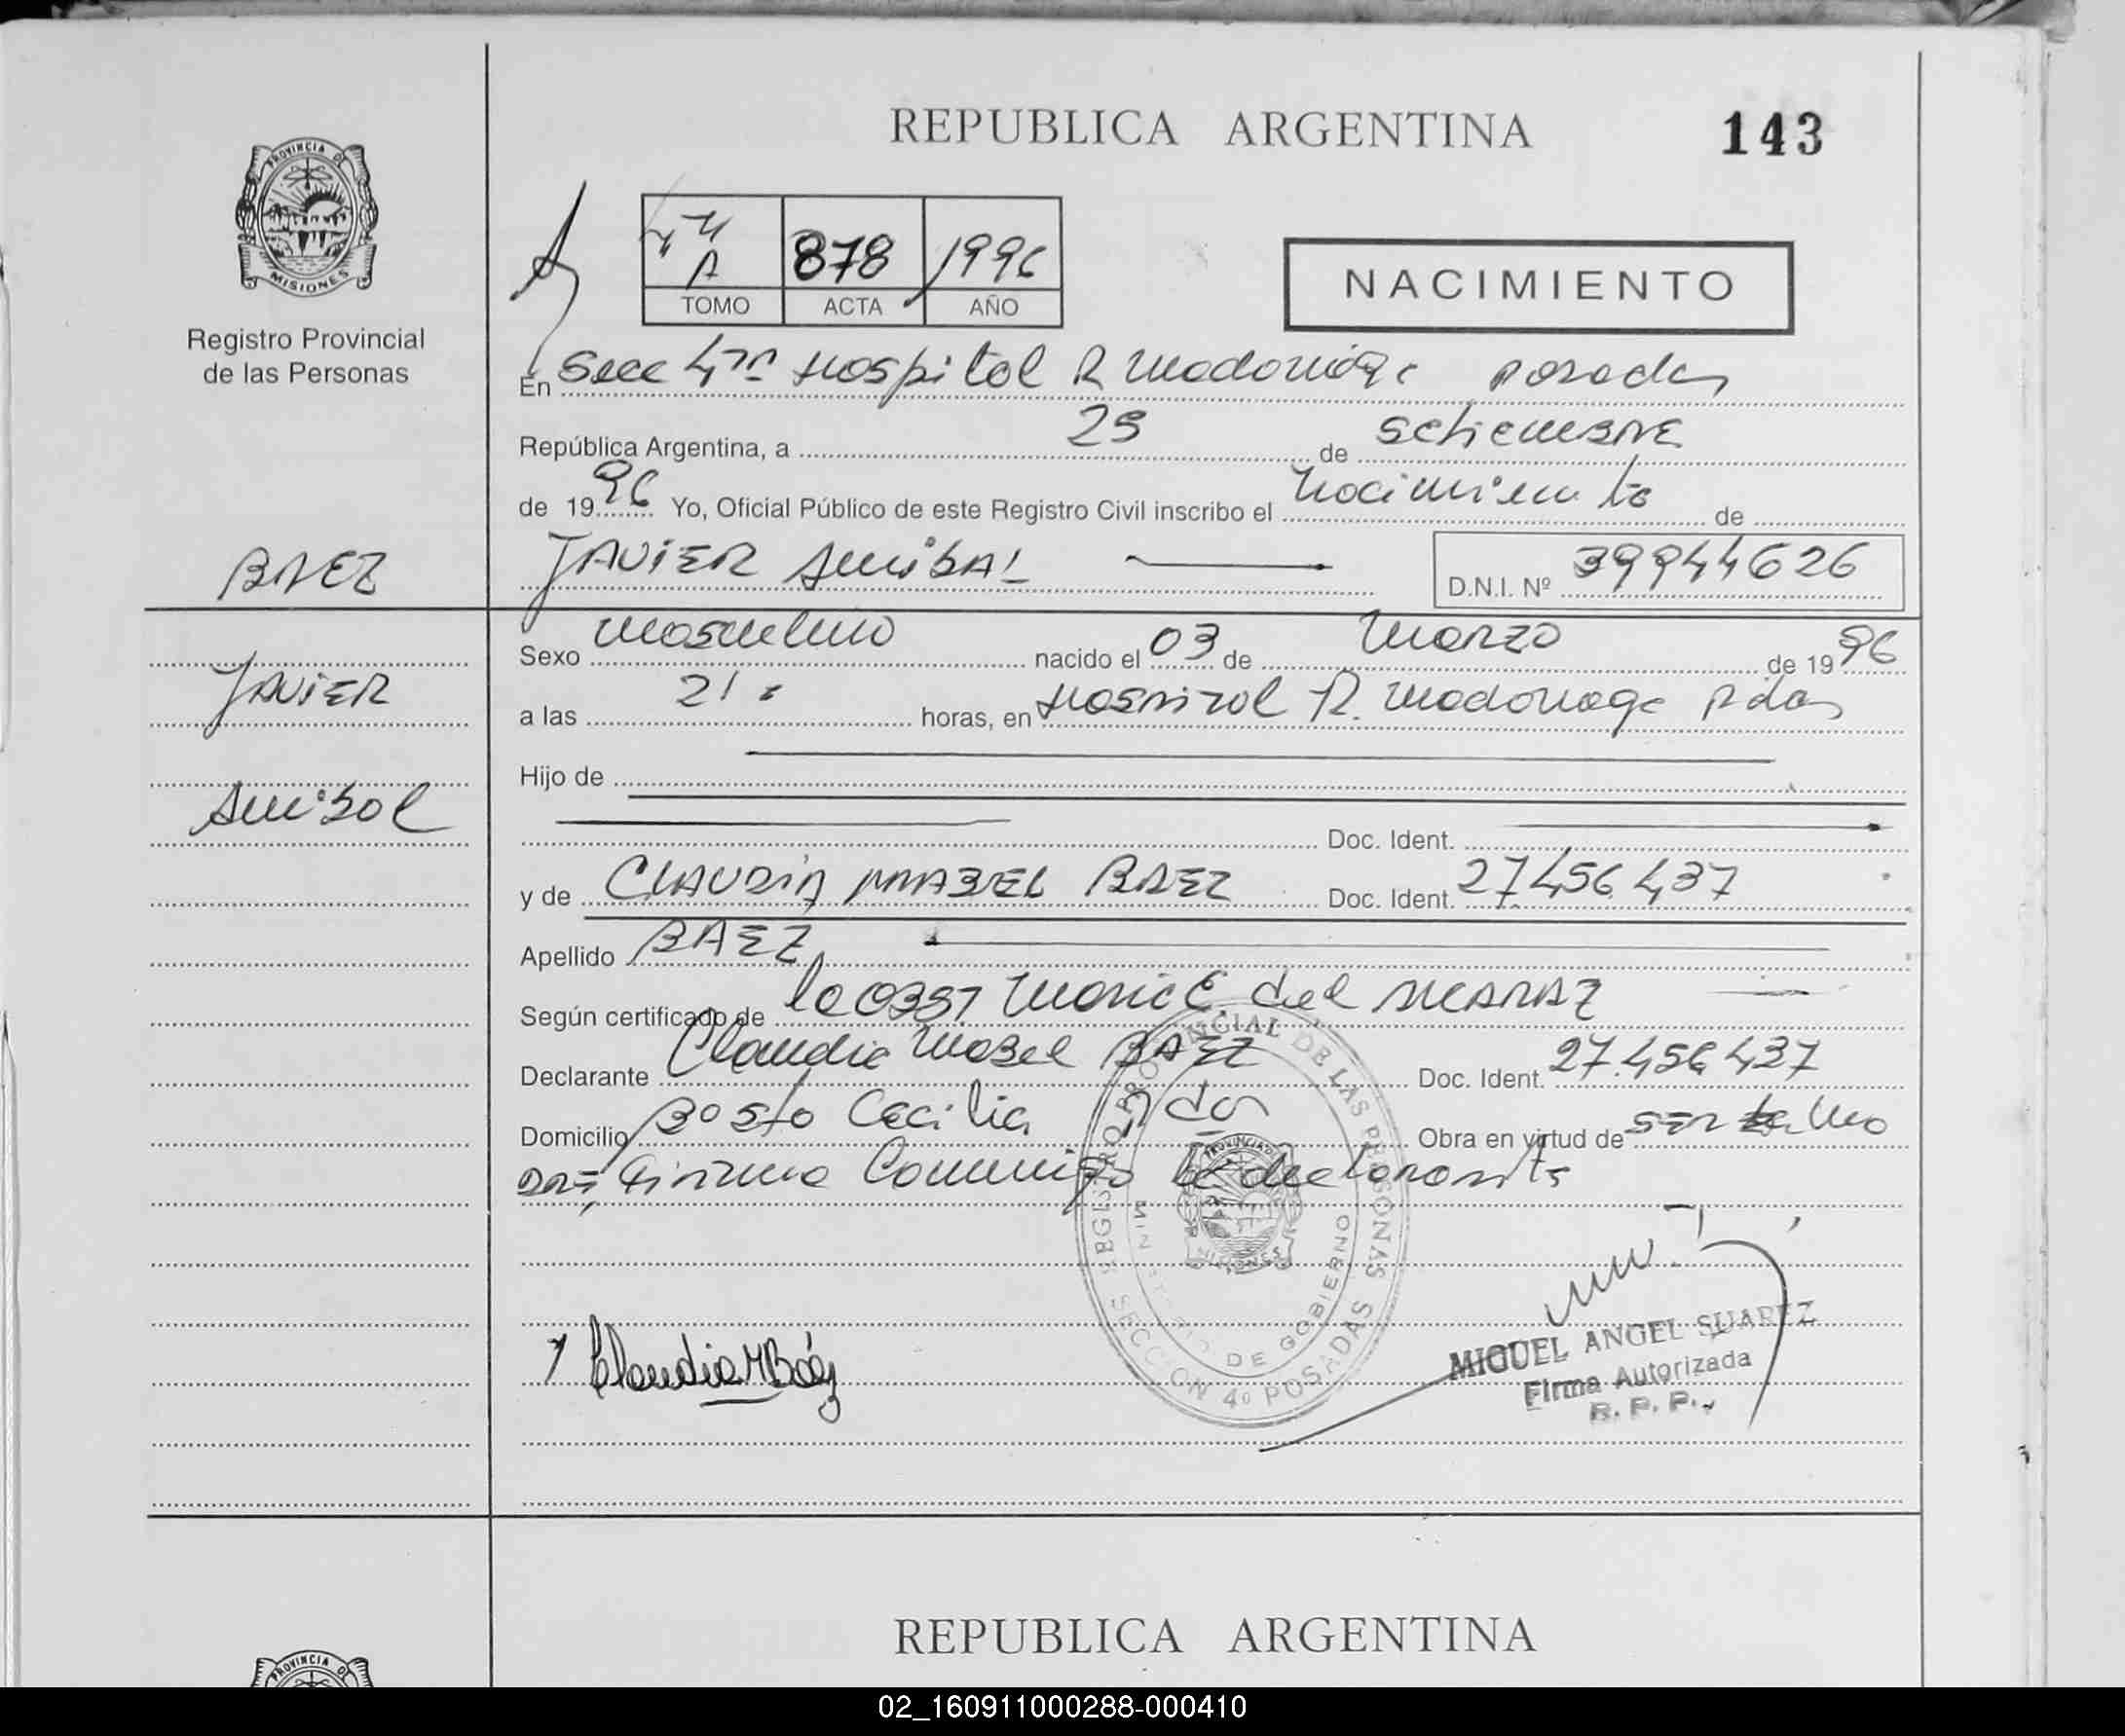 REPUBLICA ARGENTINA
143
PROVINCIA DE
MISIONES
Registro Provincial
de las Personas
A
878
1996
TOMO ACTA AÑO
NACIMIENTO
En Secc 4ta Hospital R Madariaga Posadas
República Argentina, a 25 de setiembre
de 1996 Yo, Oficial Público de este Registro Civil inscribo el nacimiento de
BAEZ
JAVIER ANIBAL
D.N.I. Nº 39944626
Sexo masculino nacido el 03 de marzo de 1996
JAVIER
a las 21 horas, en Hospital R. Madariaga Pdas
Hijo de
Anibal
Doc. Ident.
y de CLAUDIA MABEL BAEZ Doc. Ident. 27456437
Apellido BAEZ
Según certificado de la del
Declarante Claudia Mabel BAEZ Doc. Ident. 27.456437
Domicilio Bo Sto Cecilia Pdas Obra en virtud de ser la
madre Firma Conmigo la declarante
REGISTRO PROVINCIAL DE LAS PERSONAS
MINISTERIO DE GOBIERNO
SECCION 4º POSADAS
Claudia M Báez
MIGUEL ANGEL SUAREZ
Firma Autorizada
R. P. P.
REPUBLICA ARGENTINA
PROVINCIA DE
02_160911000288-000410